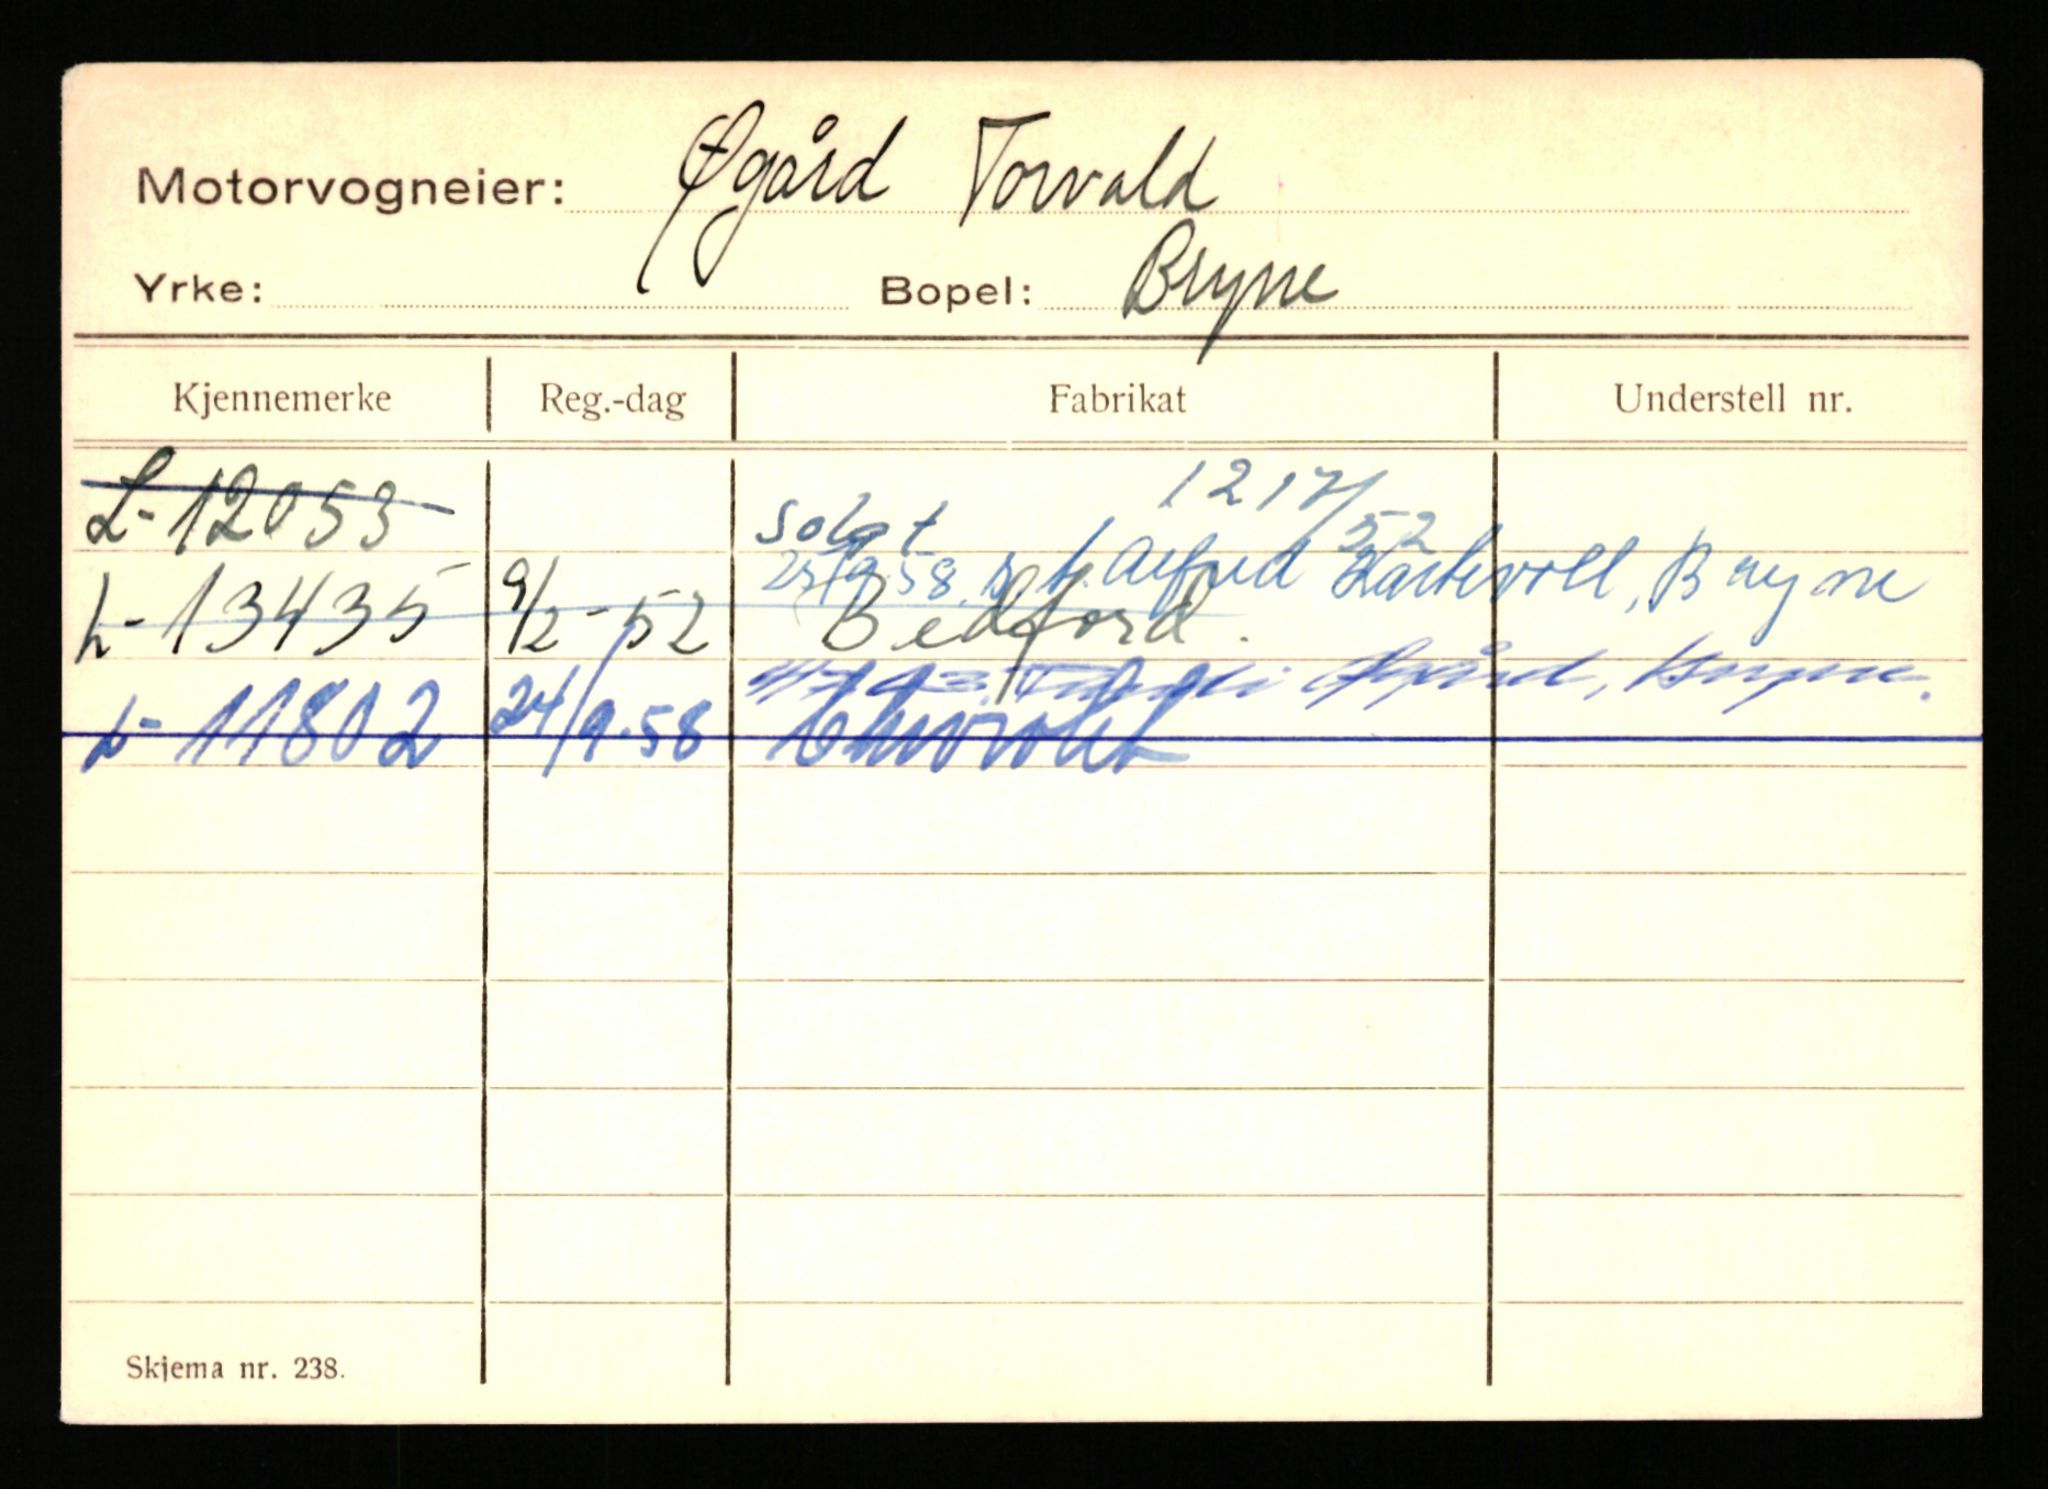 Motorvogneier: Øgård Torvald
Yrke: Bopel: Bryne
Kjennemerke Reg.-dag Fabrikat Understell nr.
L-12053 12 17/52
solgt
25/9.58 t. Alfred Bryne
L-13435 9/2-52 Bedford.
Øgård, Bryne.
L-11802 24/9.58 Chevrolet
Skjema nr. 238.